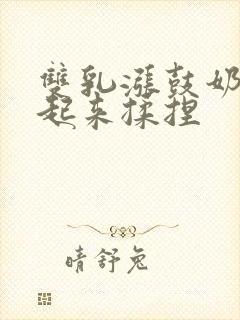 雙乳漲鼓奶
起來揉捏
晴舒兔